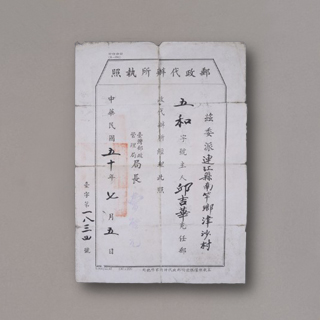 郵政代辦所執照
茲委派連江縣南竿鄉津沙村
五和字號主人邱吉華充任郵
政代辦所給此執照
臺灣郵政管理局
局長
中華民國五十年七月五日
臺字第一八三四號